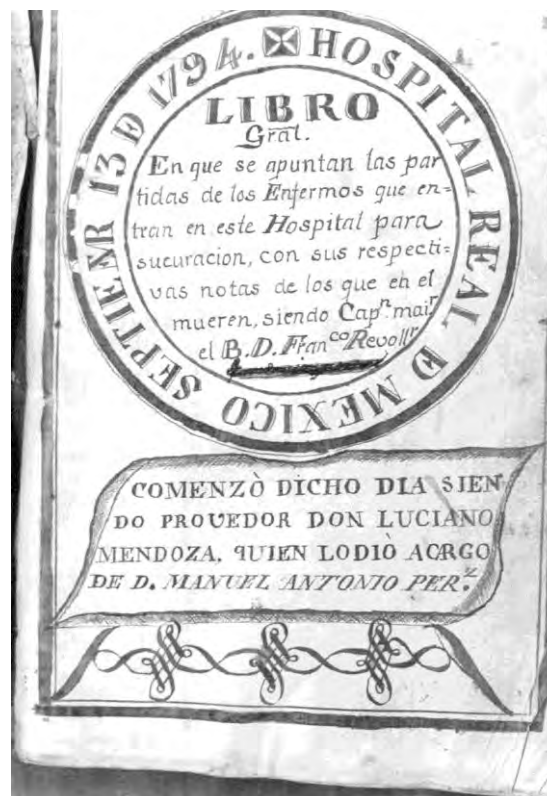 HOSPITAL REAL Đ MEXICO SEPTIEMR 13 Đ 1794.
LIBRO
Gral.
En que se apuntan las par
tidas de los Enfermos que en=
tran en este Hospital para
sucuracion, con sus respecti=
vas notas de los que en el
mueren, siendo Capn. mair.
el B. D. Franco Revollr.
COMENZÒ DICHO DIA SIEN
DO PROVEDOR DON LUCIANO
MENDOZA, QUIEN LODIÒ ACARGO
DE D. MANUEL ANTONIO PERz.